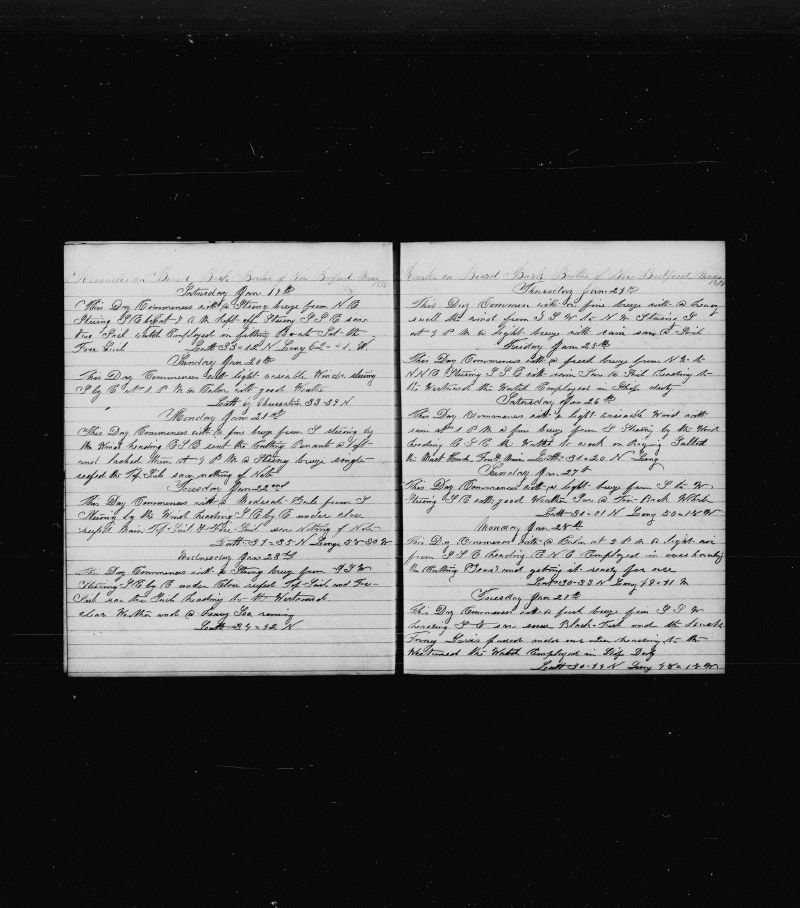 Remarks on Board Bark of New Bedford Mass
Saturday Jan 19th
This Day Commences with a Strong breeze from N E
Steering S E by E at 7 A M kept off Steering S S E saw
two Sail watch Employed in fitting Set the
Fore Sail Latt 33=12 N Long 62= W
Sunday Jan 20th
This Day Commences with light variable Winds steering
S by E at 1 P M a Calm with good Weather
Latt by Observation 33-29 N
Monday Jan 21st
This Day Commences with a fine breeze from S steering by
the Wind heading E S E sent the Cutting Penants aloft
and lashed them at 9 P M a Strong breeze single
reefed the Top Sails saw nothing of Note
Tuesday Jan 22nd
This Day Commences with a Moderate Gale from S
Steering by the Wind heading S E by E under close
reefed Main Top Sail & Fore Sail saw Nothing of Note
Latt 33=35 N Long 58=30 W
Wednesday Jan 23th
This Day Commences with a Strong breeze from S S W
Steering S E by E under Close reefed Top Sails and Fore
Sail saw two Sails heading to the Westward
clear Weather and a heavy Sea running
Latt 34=32 N
Remarks on Board Bark of New Bedford Mass
Thursday Jan 24th
This Day Commences with a fine breeze with a heavy
swell the wind from S S W to N W Steering S
at 9 P M a light breeze with rain saw a Sail
Friday Jan 25th
This Day Commences with a fresh breeze from N W to
N N E Steering S S E with rain Saw a Sail heading to
the Westward the Watch Employed in Ships duty
Saturday Jan 26th
This Day Commences with a light variable Wind with
rain at 1 P M a fine breeze from S Steering by the Wind
heading E S E the Watch at work on Riging
the Mast Heads Fore & Main Latt-31=20 N Long
Sunday Jan 27th
This Day Commences with a light breeze from S to W
Steering S E with good Weather Saw a Fin-Back Whale
Latt 31=01 N Long 50=18 W
Monday Jan 28th
This Day Commences with a Calm at 2 P M a light air
from S S E heading E N E Employed in overhauling
the Cutting Gear and getting it ready for use
Latt 30-33 N Long 49=41 W
Tuesday Jan 29th
This Day Commences with a fresh breeze from S S W
heading S E saw some Black-Fish and the
passed under our Lee heading to the
Westward the Watch Employed in Ships Duty
Latt 30-44 N Long 48=18 W